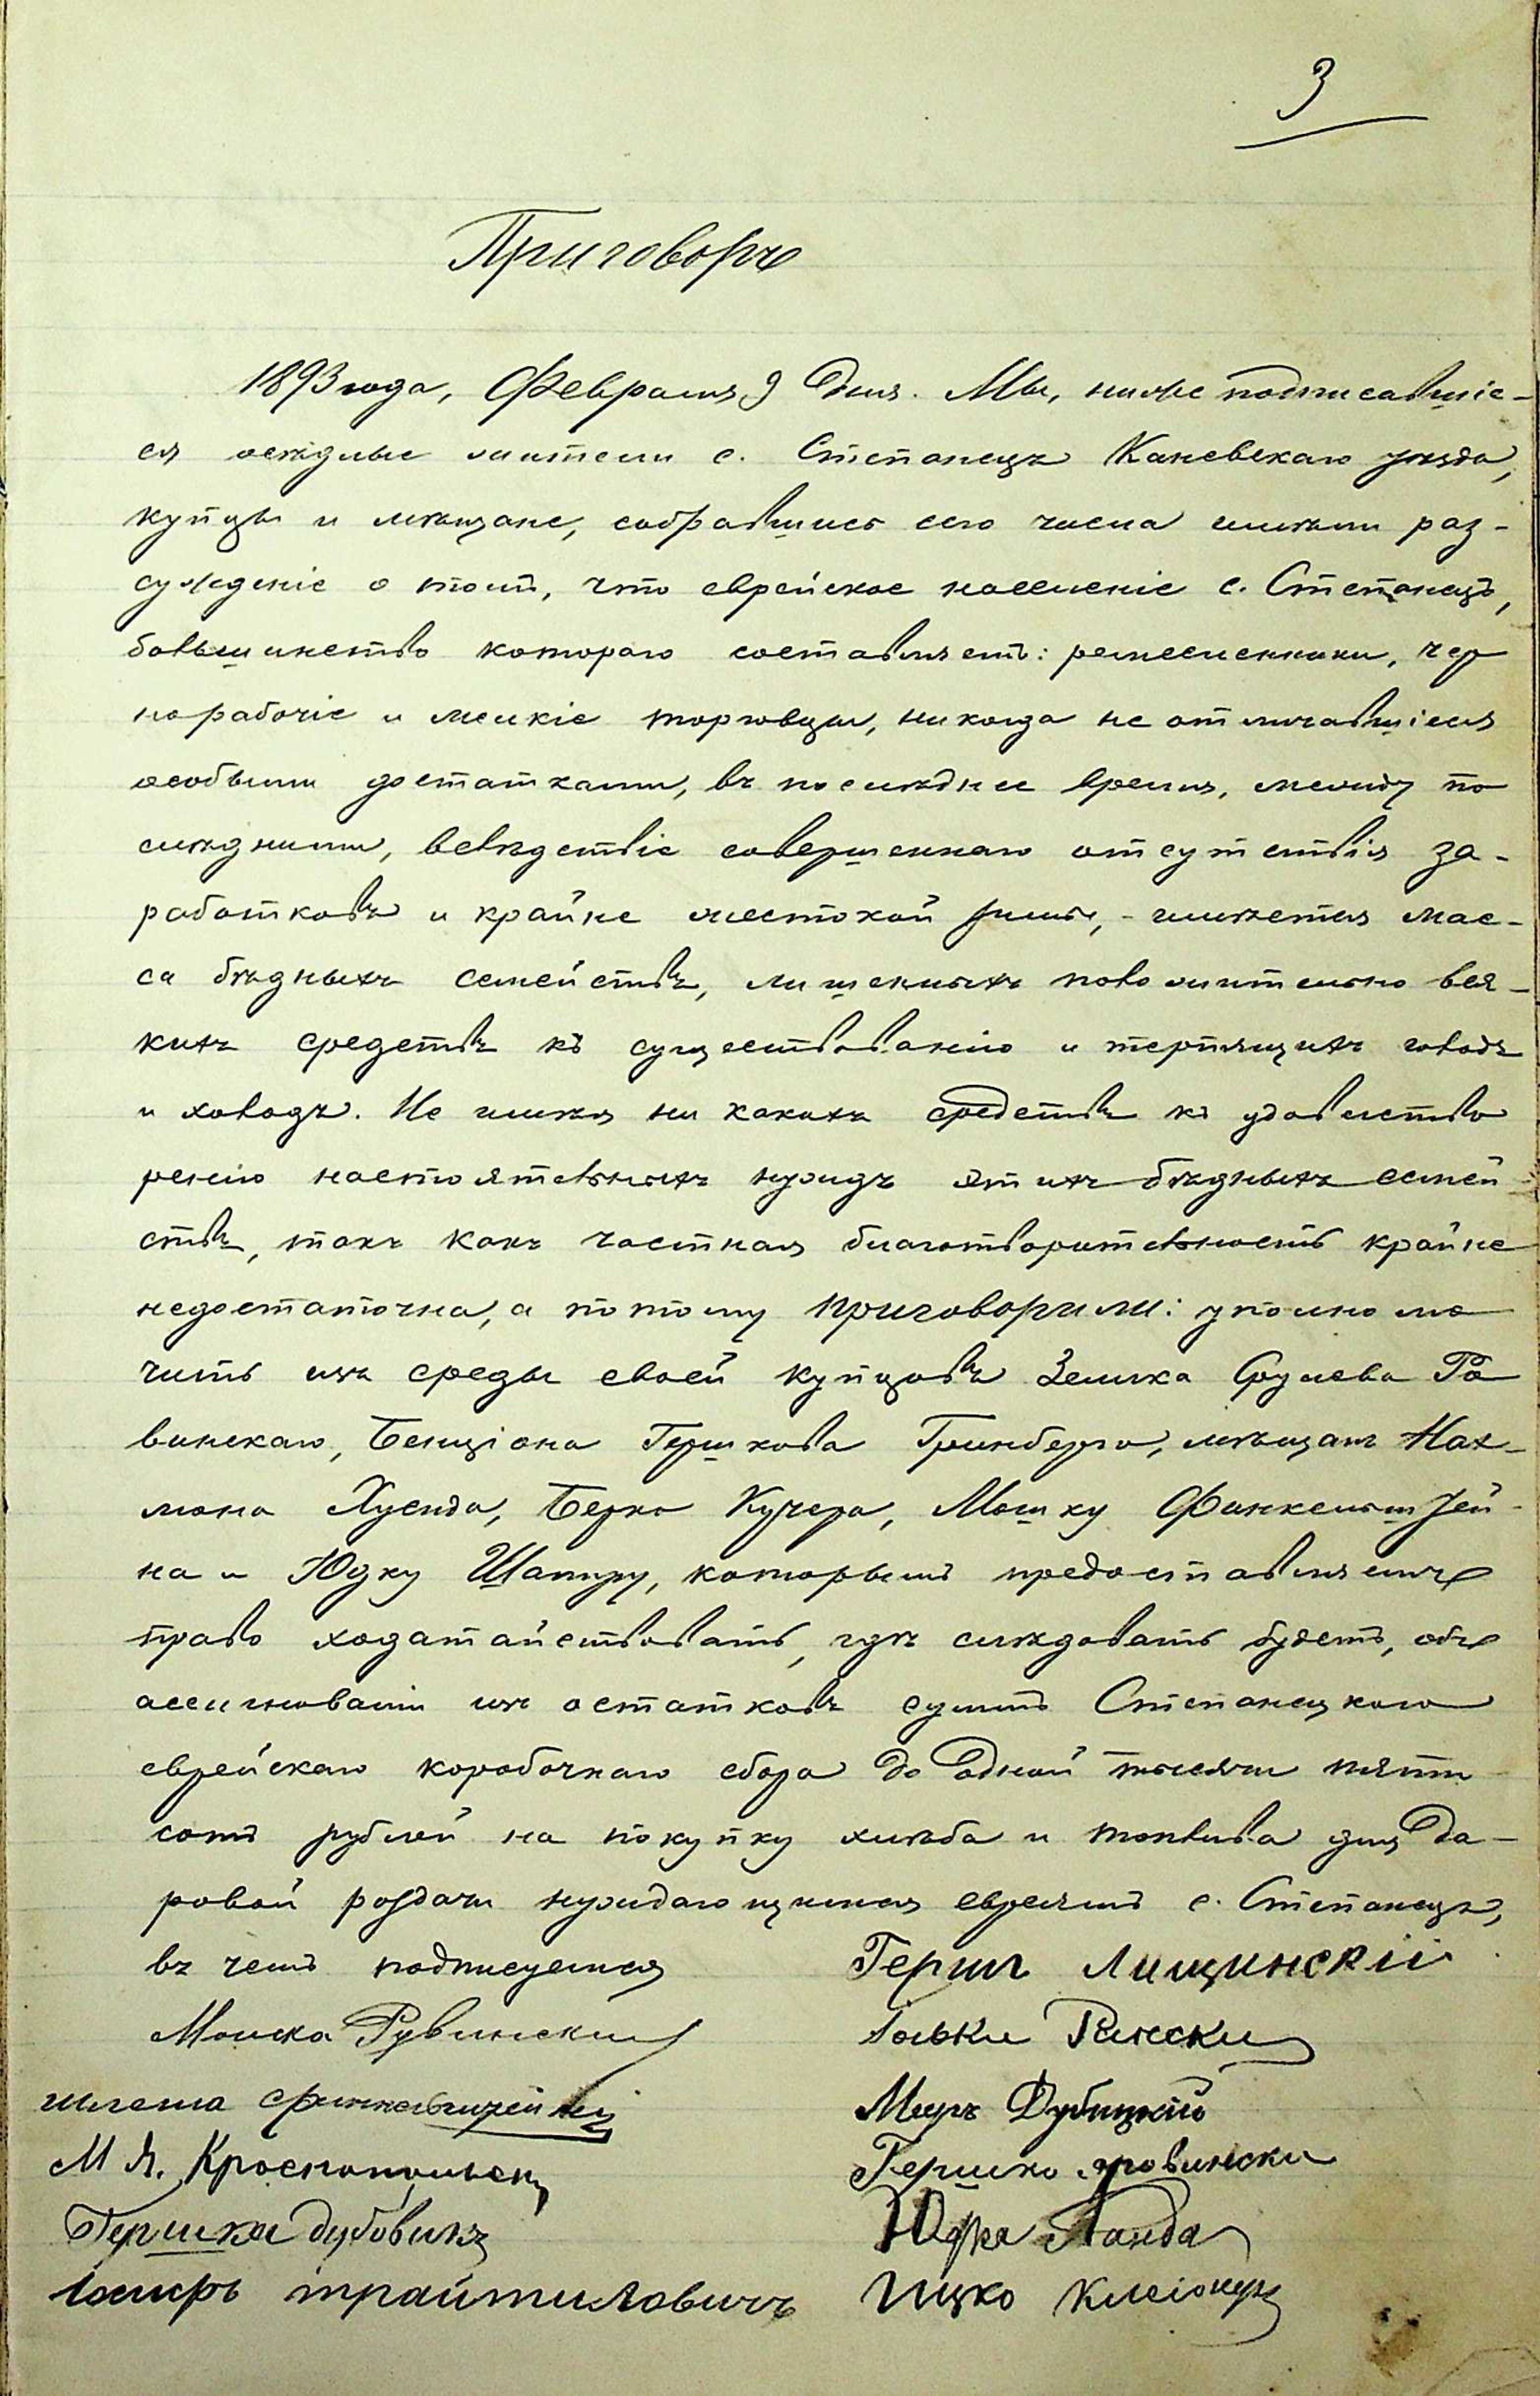 3
Приговоръ
1893 года, Февраля 9 дня. Мы, нижеподписавшіе-
ся осѣдлые жители с. Степанецъ Каневскаго уѣзда,
купцы и мѣщане, собравшись сего числа имѣли раз-
сужденіе о томъ, что еврейское населеніе с. Степанецъ,
большинство котораго составляетъ: ремесленники, чер
норабочіе и мелкіе торговцы, никогда не отличавшіеся
особыми достатками, въ последнее время, между по
слѣдними, вслѣдствіе совершеннаго отсутствія за-
работковъ и крайне жестокой зимы, - имѣется мас-
са бѣдныхъ семействъ, лишенныхъ положительно вся-
кихъ средствъ къ существованію и терпящихъ голодъ
и холодъ. Не имѣя ни какихъ средствъ къ удовлетво
ренію настоятельныхъ нуждъ этихъ бѣдныхъ семей
ствъ, такъ какъ частная благотворительность крайне
недостаточна, а потому приговорили: уполномо
чить изъ среды своей купцовъ Зелика Срулева Ро
винскаго, Бенціона Гершкова Гринберга, мѣщанъ Нах-
мана Хуенда, Берка Кучера, Мошку Финкельштей-
на и Юдку Шапиру, которымъ предоставляемъ
право ходатайствовать, гдѣ слѣдовать будетъ, объ
ассигнованіи изъ остатковъ суммъ Степанецкаго
еврейскаго коробочнаго сбора до одной тысячи пяти
сотъ рублей на покупку хлѣба и топлива для да-
ровой роздачи нуждающимся евреямъ с. Степанецъ,
въ чемъ подписуемся
Гершъ Лищинскій
Мошка Рувински
М Я.
Меръ Дубицкій
Гершко
Гершка Дубовикъ
Юдка Ланда
Ицко